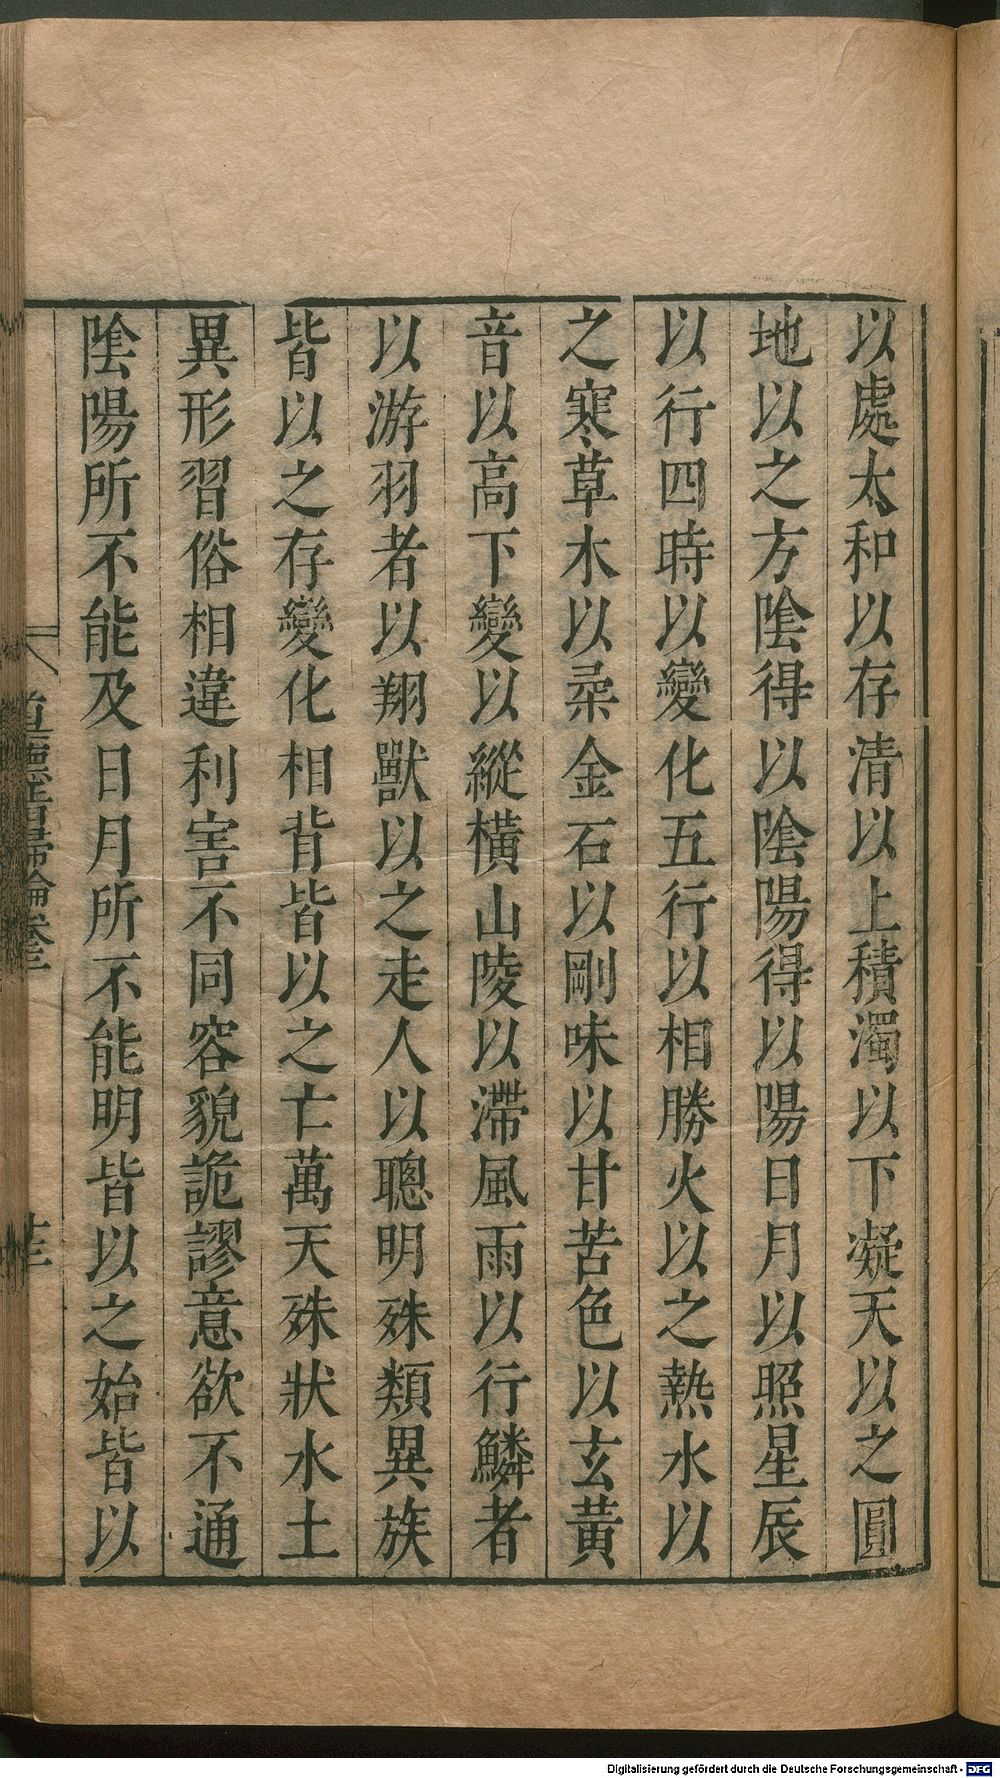 以處太和以存清以上積濁以下凝天以之圓
地以之方陰得以陰陽得以陽日月以照星辰
以行四時以變化五行以相勝火以之熱水以
之寒草木以柔金石以剛味以甘苦色以玄黃
音以高下變以縱橫山陵以滯風雨以行鱗者
以游羽者以翔獸以之走人以聰明殊類異族
皆以之存變化相背皆以之亡萬天殊狀水土
異形習俗相違利害不同容貌詭謬意欲不通
陰陽所不能及日月所不能明皆以之始皆以
道德指歸論卷三
Digitalisierung gefördert durch die Deutsche Forschungsgemeinschaft - DFG